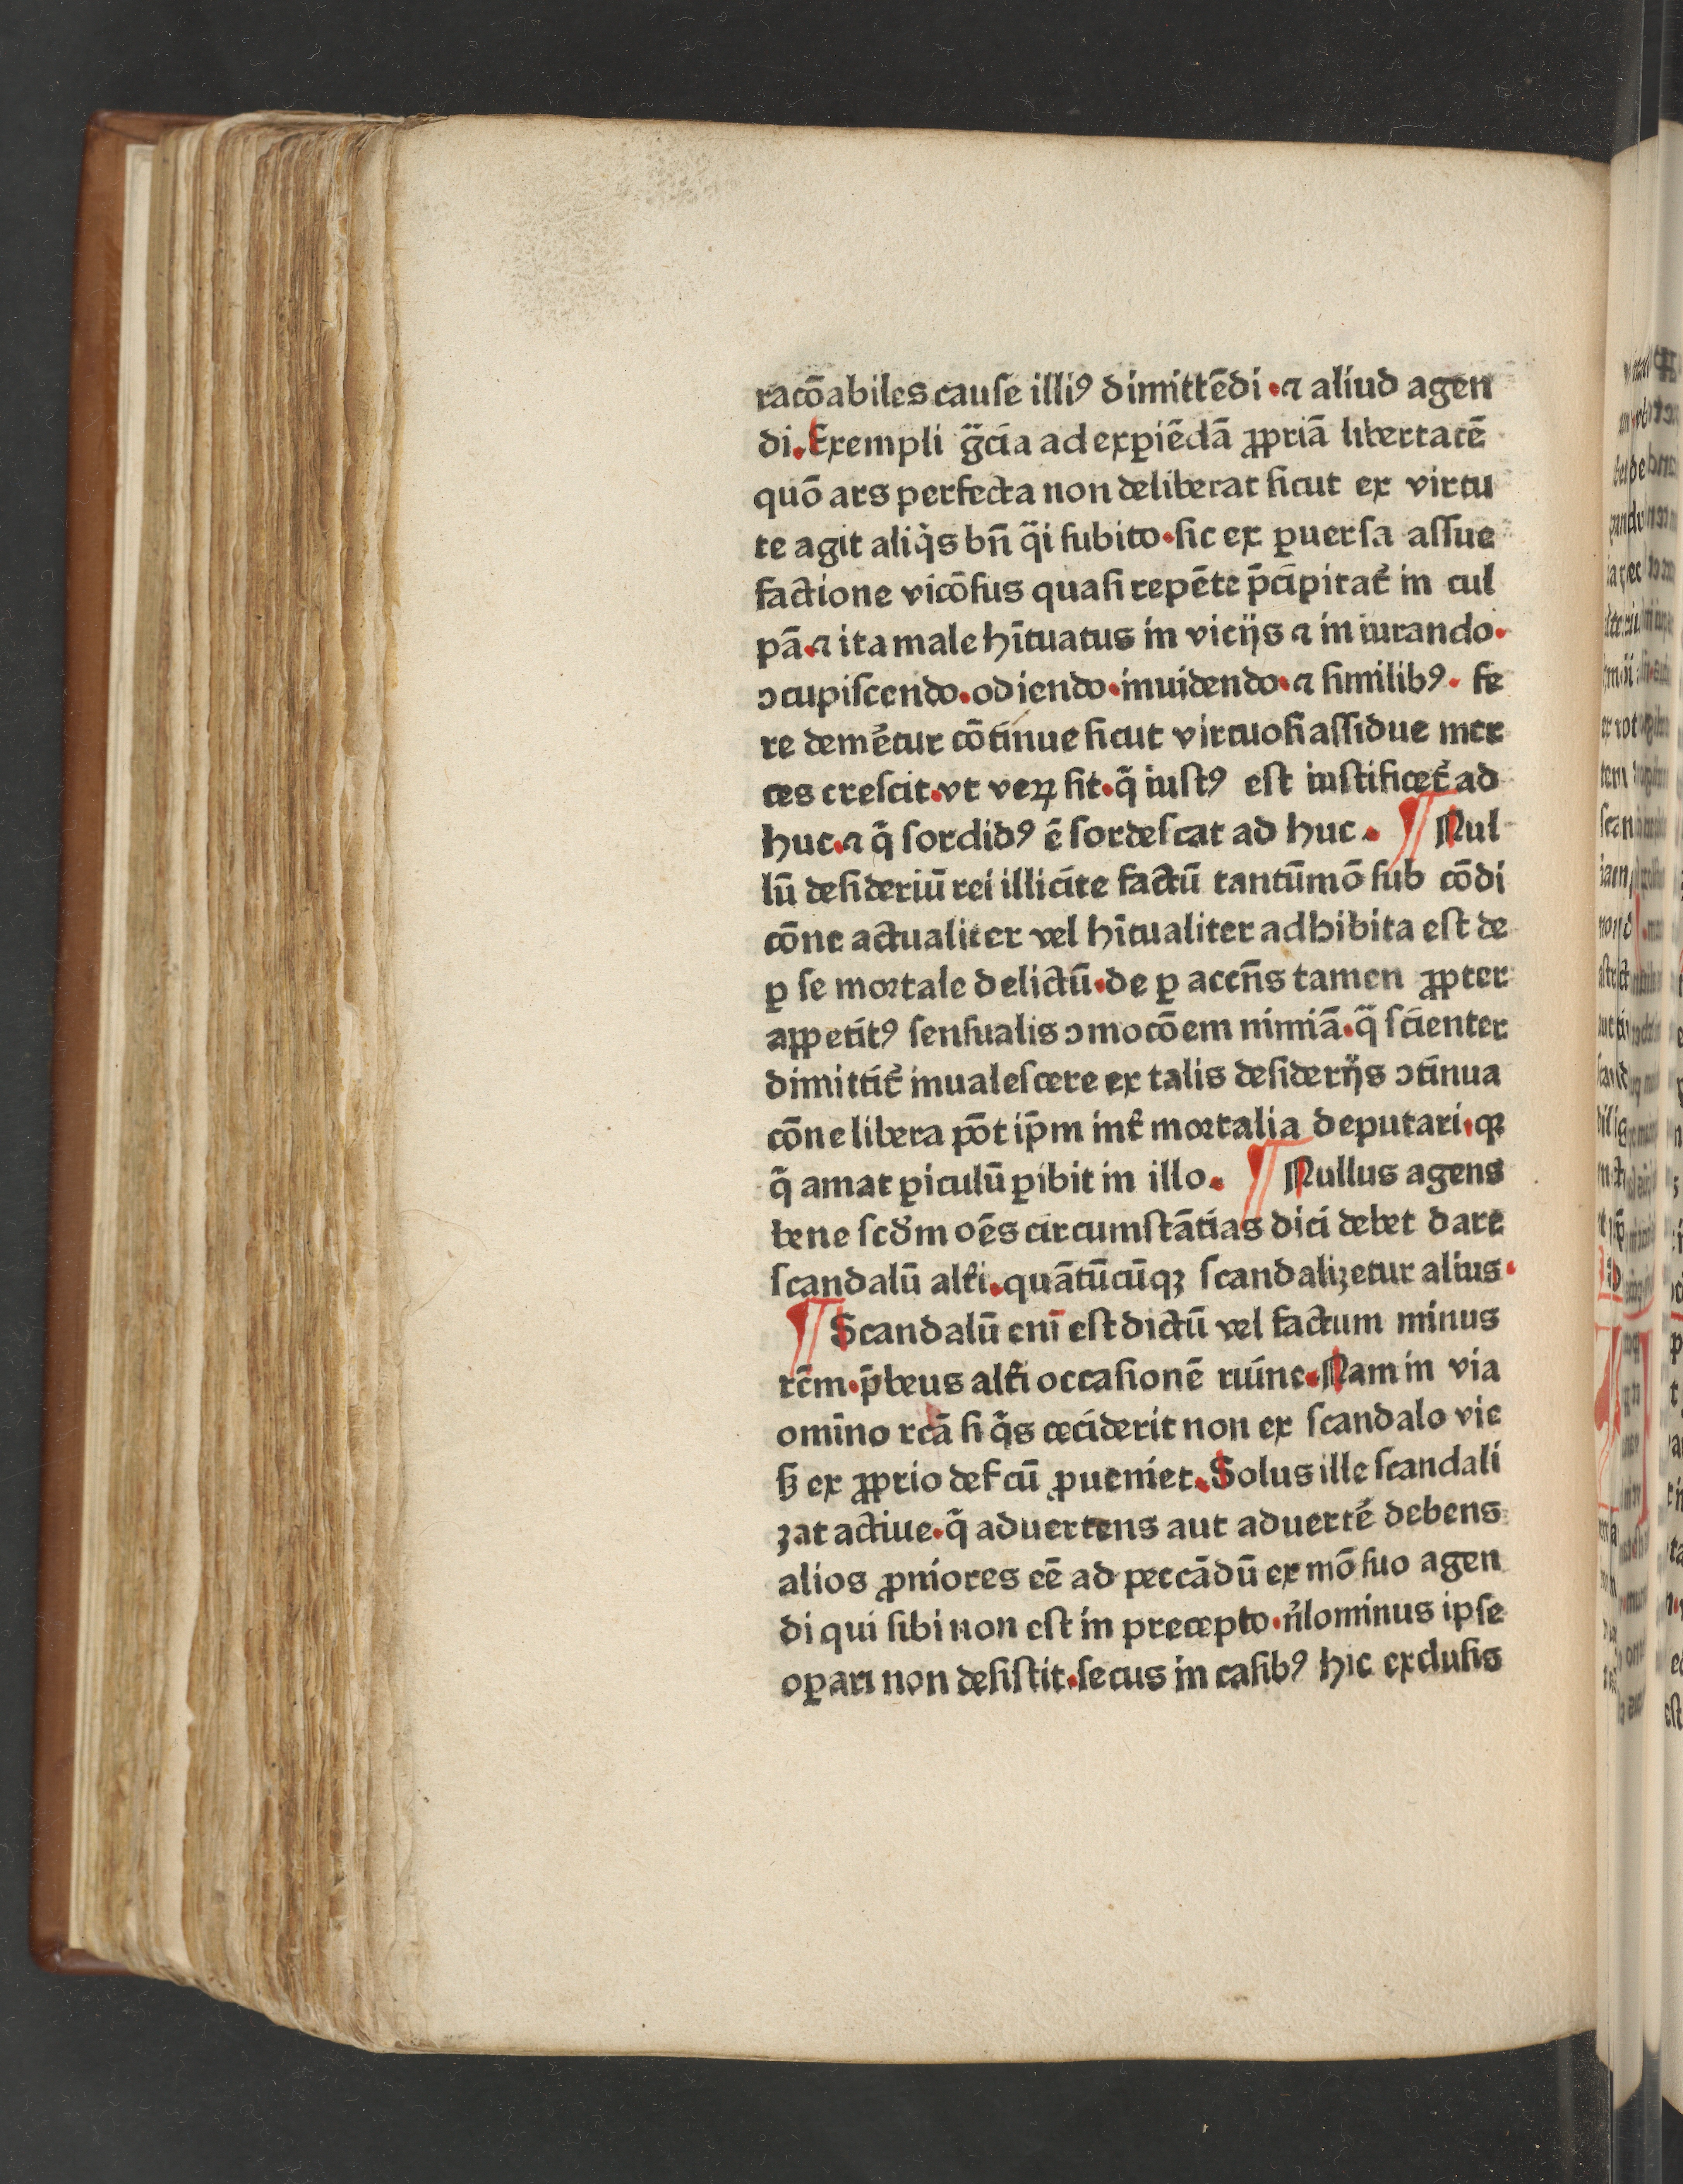 racōabiles cauſe illiꝰ dimittēdi·⁊ aliud agen
di. Exempli g̃cia ad exꝑiēdā ꝓpriā libertatē
quō ars perfecta non deliberat ſicut ex virtu
te agit aliq̇s bn̄ q̄ſi ſubito·ſic ex ꝑuerſa aſſue
factione vicōſus quaſi repēte p̄cipitat̄ in cul
pā·⁊ ita male hītuatus in vicijs ⁊ in iurando·
ↄcupiſcendo·odiendo·inuidendo·⁊ ſimilibꝰ· fe
re demētur cōtinue ſicut virtuoſi aſſidue mer
ces creſcit·vt veꝝ ſit·q̄ iuſtꝰ eſt iuſtificet̄ ad
huc·⁊ q̄ ſordidꝰ ē ſordeſcat ad huc. ¶ Nul
lū deſideriū rei illicite factū tantūmō ſub cōdi
cōne actualiter vel hītualiter adhibita eſt de
ꝑ ſe mortale delictū·de ꝑ accn̄s tamen ꝓpter
appetitꝰ ſenſualis ↄmocōem nimiā·q̄ ſcienter
dimittit̄ inualeſcere ex talis deſiderijs ↄtinua
cōne libera pōt ip̄m int̄ mortalia deputari·qꝛ
q̄ amat ꝑiculū ꝑibit in illo. ¶ Nullus agens
bene ſcd̄m oēs circumſtātias dici debet dare
ſcandalū alt̄i·quātūcūqꝫ ſcandalizetur alius·
¶ Scandalū enī eſt dictū vel factum minus
rc̄m·p̄beus alt̄i occaſionē ruine·Nam in via
omīno rcā ſi q̇s ceciderit non ex ſcandalo vie
ſꝫ ex ꝓprio def̄cū ꝓueniet·Solus ille ſcandali
zat actiue·q̄ aduertens aut aduert̄e debens
alios ꝓniores eē ad peccādū ex mō ſuo agen
di qui ſibi non eſt in precepto·n̄lominus ipſe
oꝑari non deſiſtit·ſecus in caſibꝰ hic excluſis